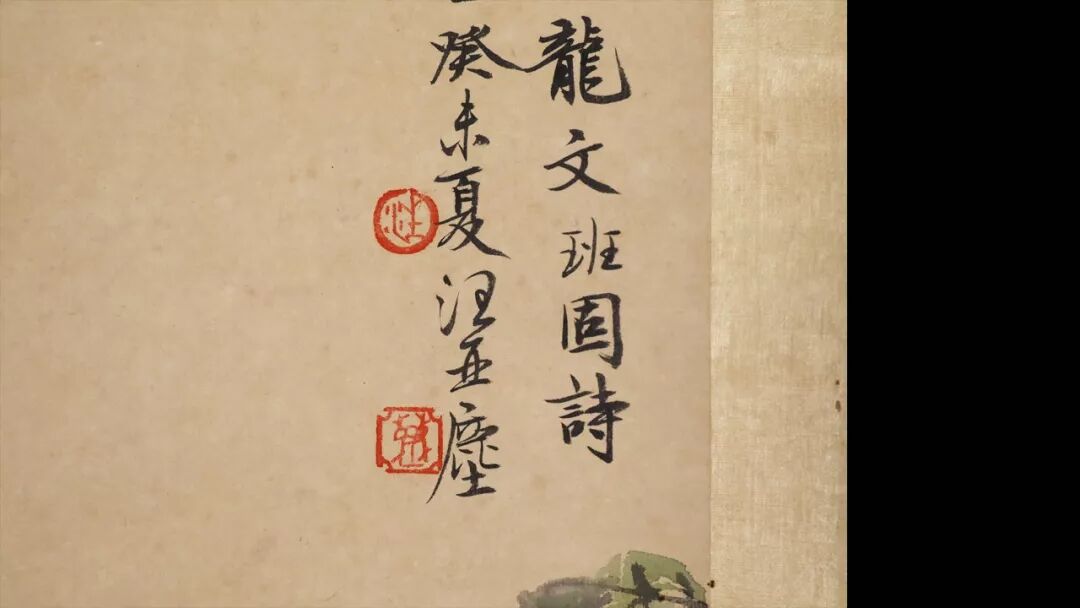 龍文班固詩
癸未夏汪亞塵
汪